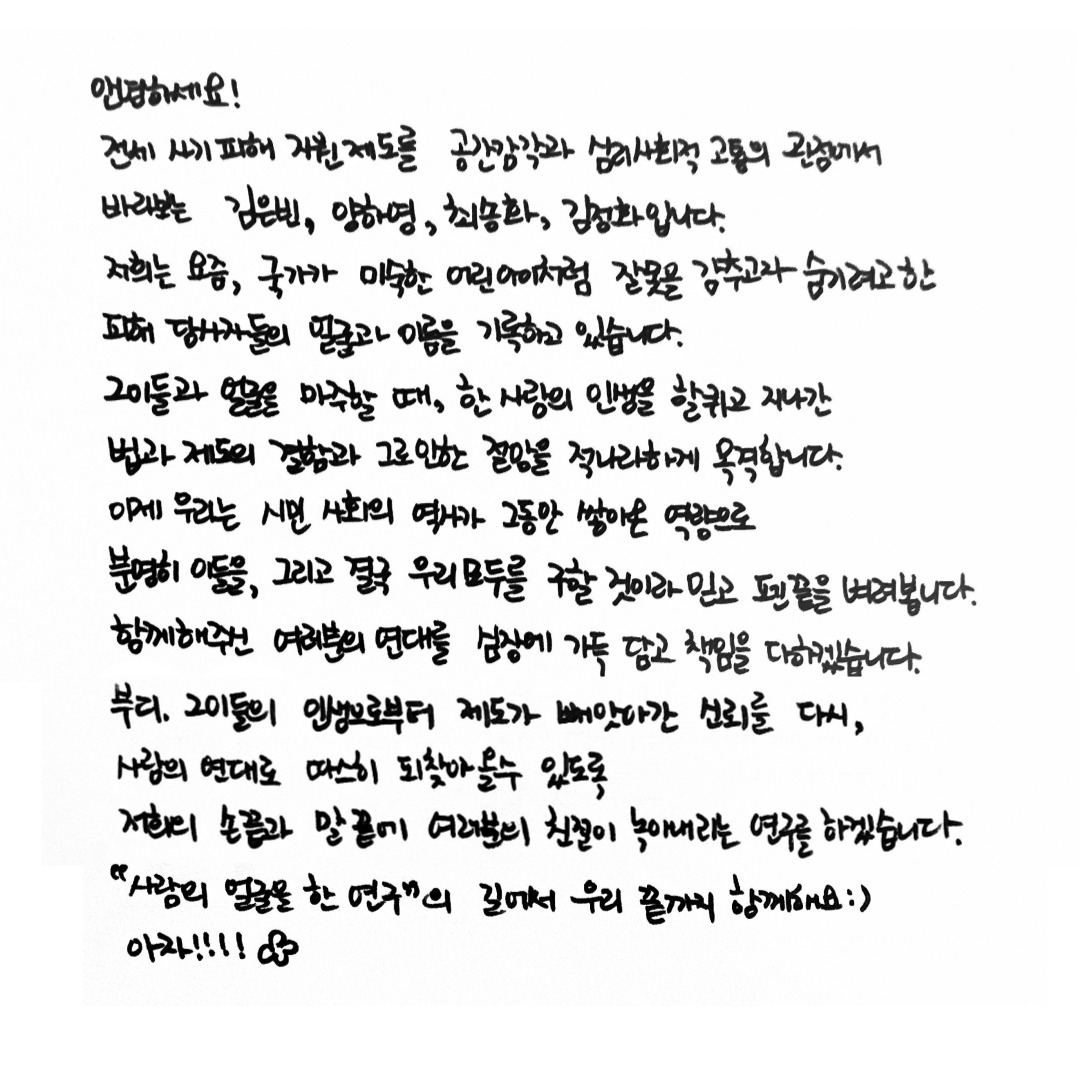 안녕하세요!
전세 사기 피해 지원 제도를 공간감각과 심리사회적 고통의 관점에서
바라보는 김은빈, 양하영, 최승화, 김정화입니다.
저희는 요즘, 국가가 미숙한 어린아이처럼 잘못을 감추고자 숨기려고 한
피해 당사자들의 얼굴과 이름을 기록하고 있습니다.
그이들과 얼굴을 마주할 때, 한 사람의 인생을 할퀴고 지나간
법과 제도의 결함과 그로 인한 절망을 적나라하게 목격합니다.
이제 우리는 시민 사회의 역사가 그동안 쌓아온 역량으로
분명히 이들을, 그리고 결국 우리 모두를 구할 것이라 믿고 펜끝을 벼려봅니다.
함께해주신 여러분의 연대를 심장에 가득 담고 책임을 다하겠습니다.
부디. 그이들의 인생으로부터 제도가 빼앗아간 신뢰를 다시,
사람의 연대로 따스히 되찾아올 수 있도록
저희의 손끝과 말끝에 여러분의 친절이 녹아내리는 연구를 하겠습니다.
“사람의 얼굴을 한 연구”의 길에서 우리 끝까지 함께해요:)
아자!!!!